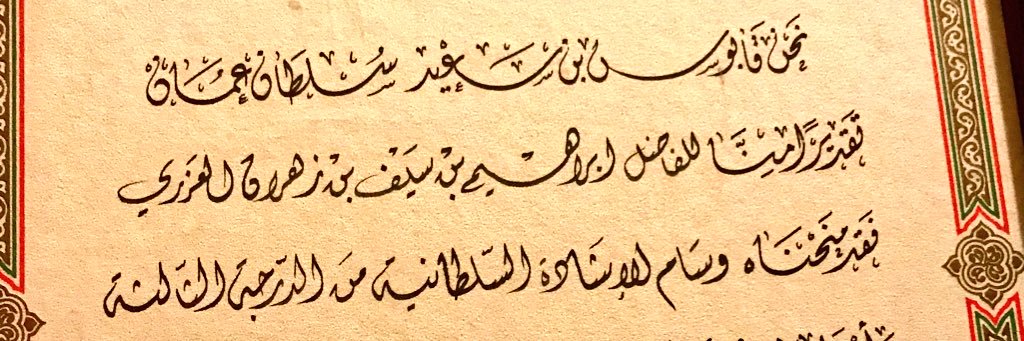 نحن قابوس بن سعيد سلطان عمان
تقديرًا منَّا للفاضل ابراهيم بن سيف بن زهران العزري
فقد منحناه وسام الإشادة السلطانية من الدرجة الثالثة